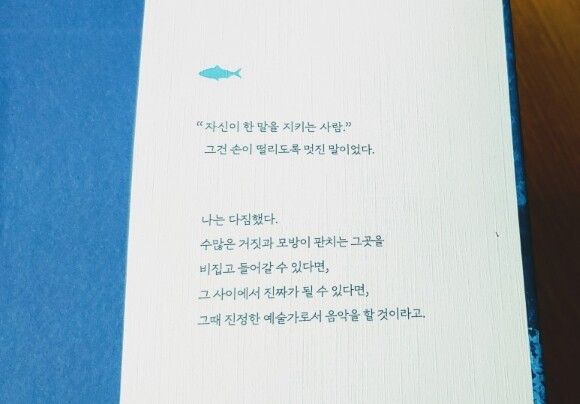 “자신이 한 말을 지키는 사람.”
그건 손이 떨리도록 멋진 말이었다.
나는 다짐했다.
수많은 거짓과 모방이 판치는 그곳을
비집고 들어갈 수 있다면,
그 사이에서 진짜가 될 수 있다면,
그때 진정한 예술가로서 음악을 할 것이라고.